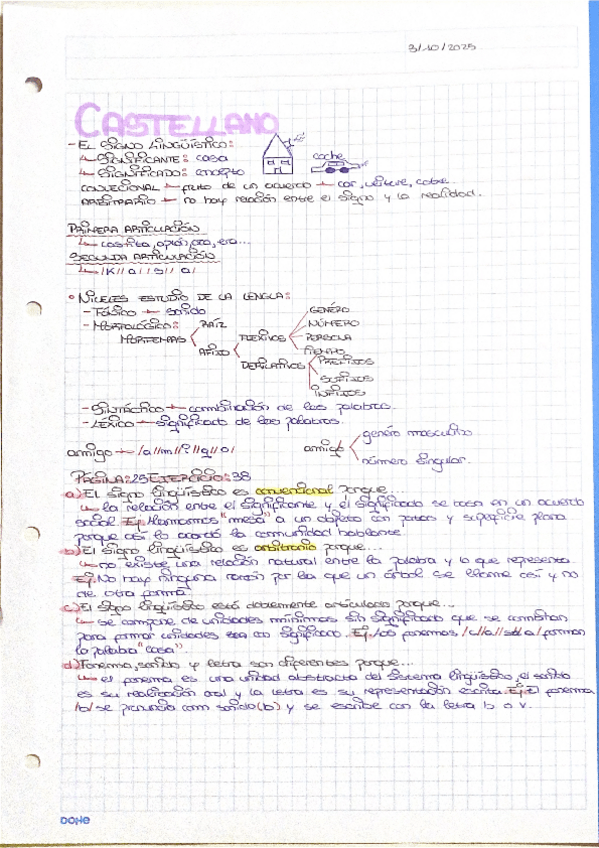 3/10/2025
CASTELLANO
- EL SIGNO LINGÜÍSTICO:
↳ SIGNIFICANTE: casa
coche
↳ SIGNIFICADO: concepto
CONVECIONAL → fruto de un acuerdo → cor, cobre.
ARBITRARIO → no hay relación entre el signo y la realidad.
PRIMERA ARTICULACIÓN
↳ casita, era...
SEGUNDA ARTICULACIÓN
↳ /K// a // s // a/
• NIVELES ESTUDIO DE LA LENGUA:
- FÓNICO → sonido
- MORFOLÓGICO:
MORFEMAS
RAÍZ
AFIJO
FLEXIVOS
GENÉRO
NÚMERO
PERSONA
TIEMPO
DERIVATIVOS
PREFIJOS
SUFIJOS
INFIJOS
- SINTÁCTICO → combinación de las palabras.
- LÉXICO → significado de las palabras.
amigo → /a//m//i//g//o/
amigo
genéro masculino
número singular.
PÁGINA: 25 EJERCICIO: 38
a) El signo lingüístico es convencional porque...
↳ la relación entre el significante y el significado se basa en un acuerdo
social. Ej: llamamos "mesa" a un objeto con patas y superficie plana
porque así lo acordó la comunidad hablante.
b) El signo lingüístico es arbitrario porque...
↳ no existe una relación natural entre la palabra y lo que representa.
Ej: No hay ninguna razón por la que un árbol se llame así y no
de otra forma.
c) El signo lingüístico está doblemente articulado porque...
↳ se compone de unidades mínimas sin significado que se combinan
para formar unidades con significado. Ej: los fonemas /c//a//s//a/ forman
la palabra "casa".
d) Fonema, sonido y letra son diferentes porque...
↳ el fonema es una unidad abstracta del sistema lingüístico, el sonido
es su realización oral y la letra es su representación escrita. Ej: El fonema
/b/ se pronuncia como sonido (b) y se escribe con la letra b o v.
DOHE